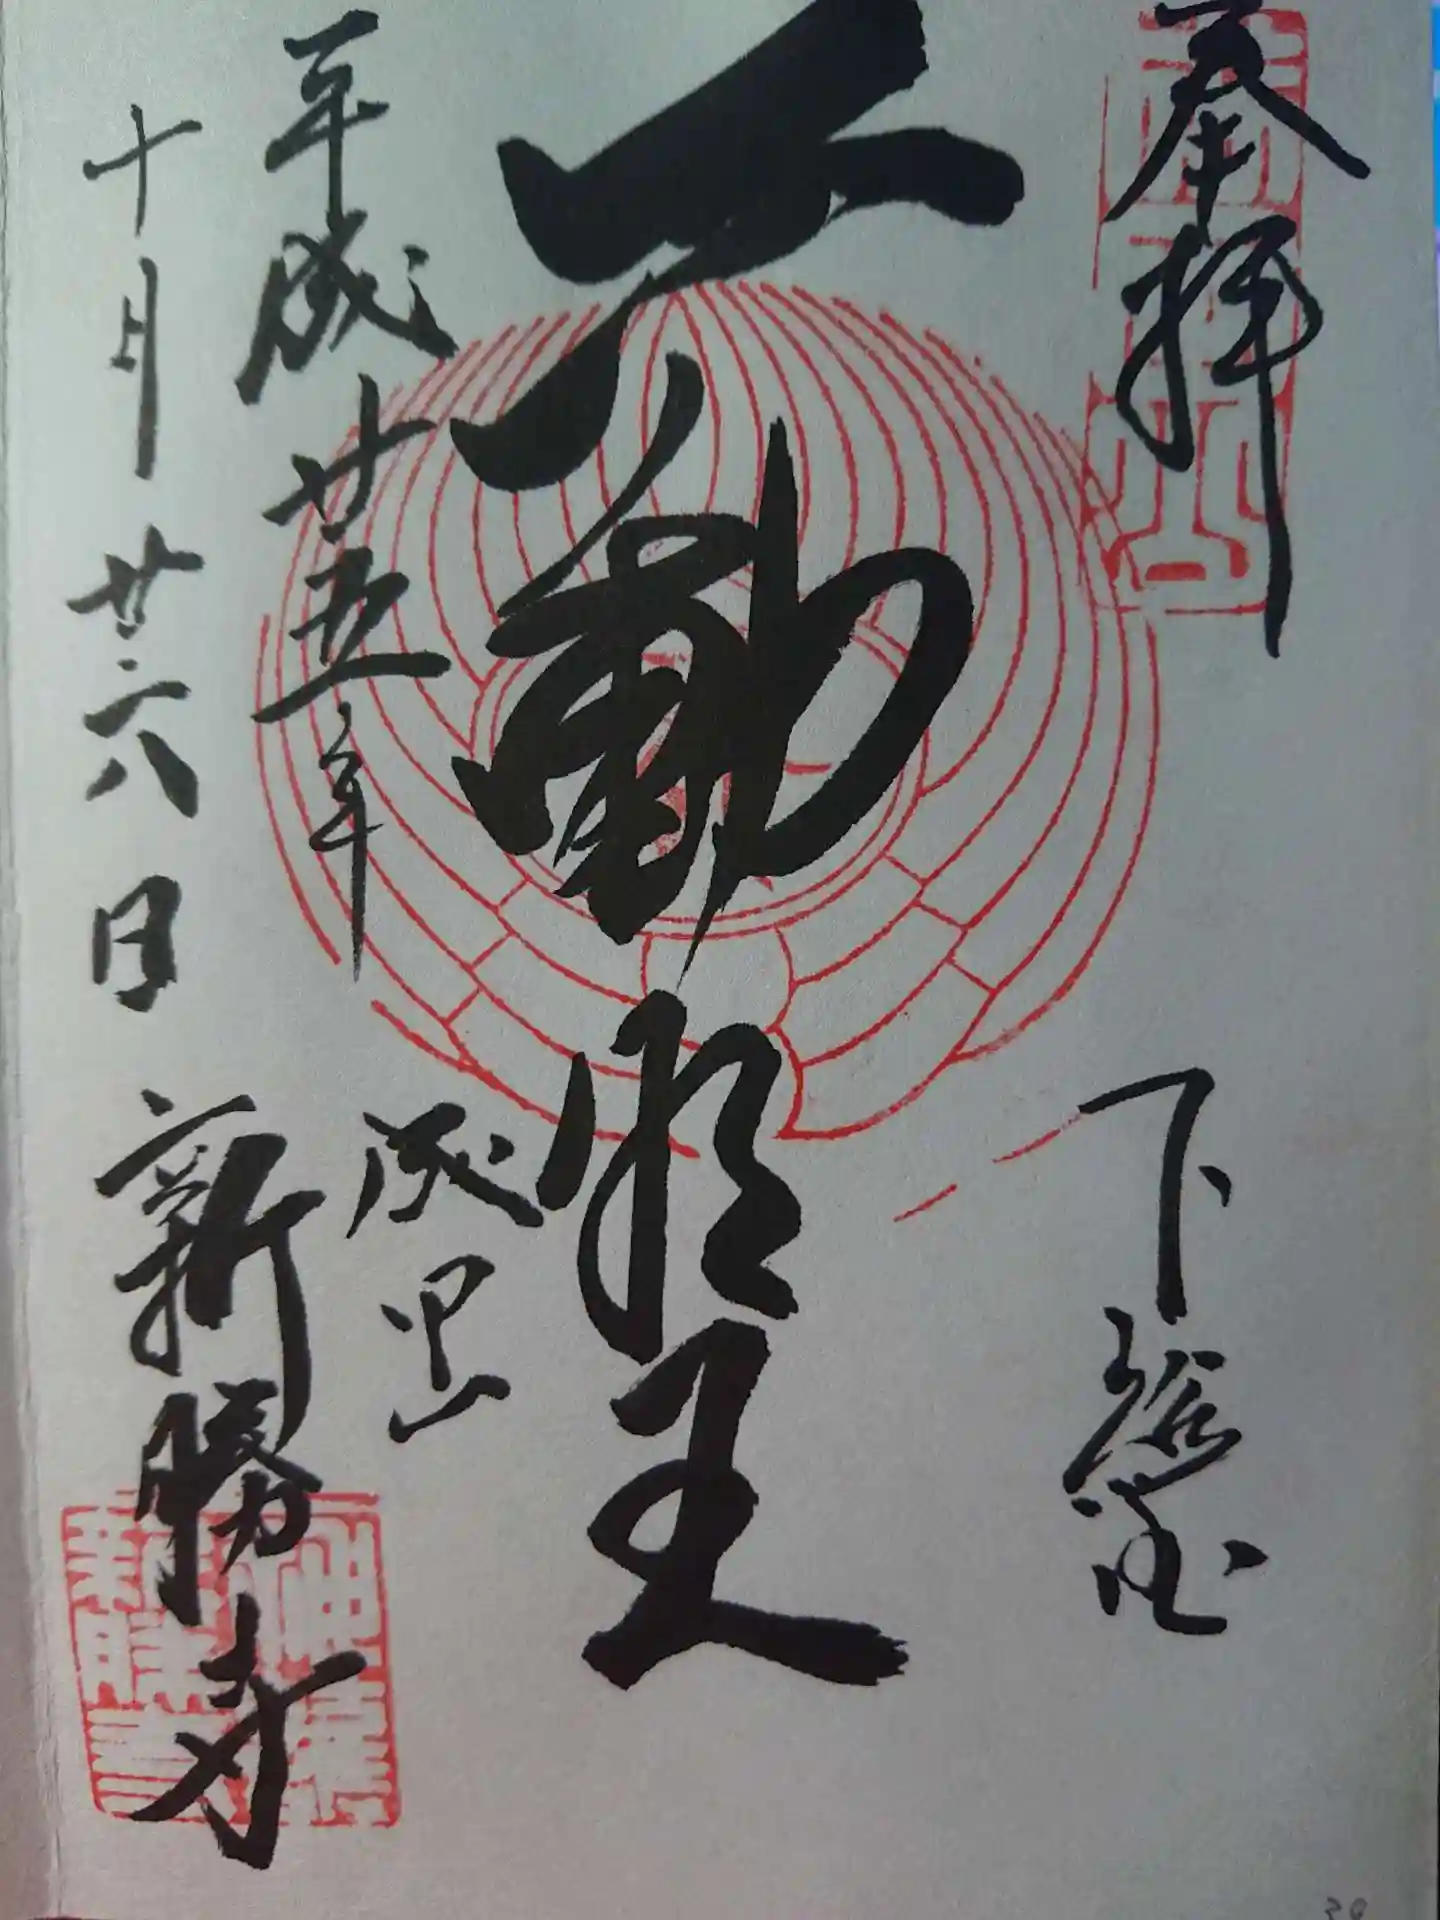 奉拝
下総國
不動明王
成田山
平成廿五年
十月廿六日
新勝寺